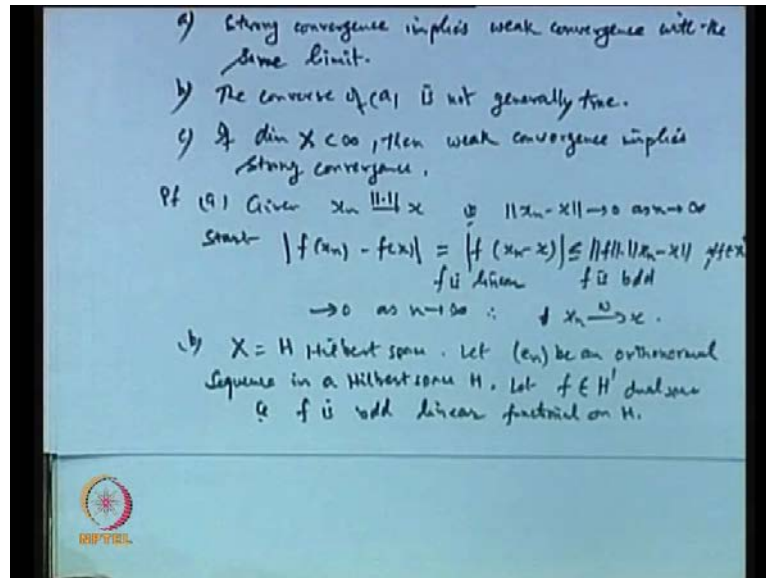 a) Strong convergence implies weak convergence with the
same limit.
b) The converse of (a) is not generally true.
c) If dim X < ∞, then weak convergence implies
strong convergence.
Pf (a) Given xn —||·||→ x ie ||xn - x|| → 0 as n → ∞
Start |f(xn) - f(x)| = |f(xn - x)| ≤ ||f||·||xn - x|| ∀ f ∈ X'
f is linear f is bdd
→ 0 as n → ∞ ∴ xn —w→ x.
(b) X = H Hilbert space. Let (en) be an orthonormal
Sequence in a Hilbert space H. Let f ∈ H' dual space
ie f is bdd linear functional on H.
NPTEL